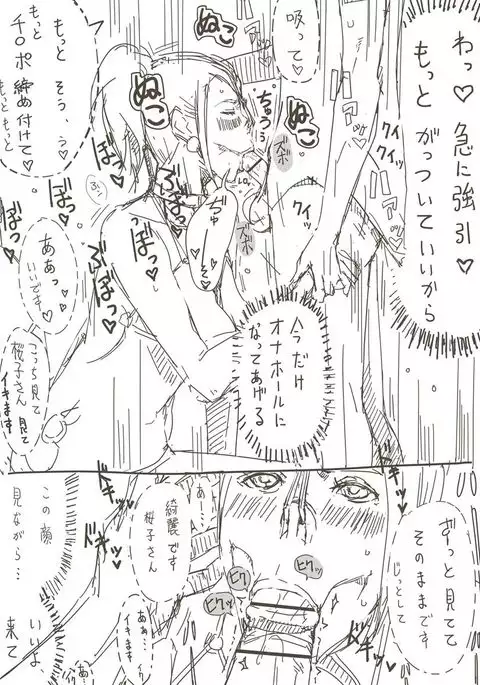 わっ♡急に強引♡
もっと がっついていいから
吸って♡
ちゅうぅ
ぬこ
ぬこ
ぬこ
ぬこ
ズボ
ズボ
クイクイ
クイッ
もっと そう、う♡
もっと
チ○ポ 締め付けて♡
もっともっと
ぼっ♡
ぶぼっ♡
ぼっ♡
ぼっ♡
ぶぼっ
ああっ♡
いいです♡
こっち見て
桜子さん 見て
イキます
今だけ
オナホールに
なってあげる
ドキッ♥
ドキッ♥
ずっと見てて
そのままです
じっとして
あー…
綺麗です
桜子さん
ビクッ
ビクッ
ビクッ
ビクッ
この顔
見ながら…
いいよ
来て
あぁ…
イキます
あー…